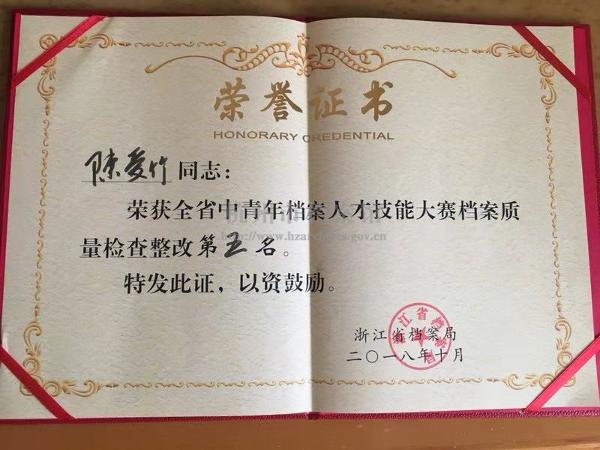 荣誉证书
HONORARY CREDENTIAL
陈爱竹同志：
荣获全省中青年档案人才技能大赛档案质
量检查整改第五名。
特发此证，以资鼓励。
浙江省档案局
二〇一八年十月